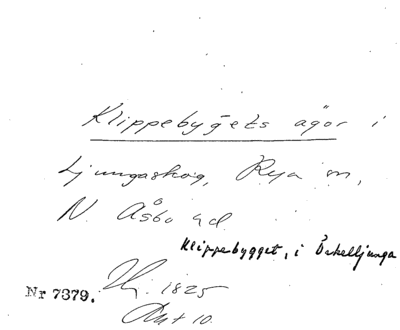 Klippebygets ägor i
Ljungaskog, Rya sn,
N. Åsbo hd
Klippebygget, i Örkelljunga
Nr 7379.
1825
Akt 10.